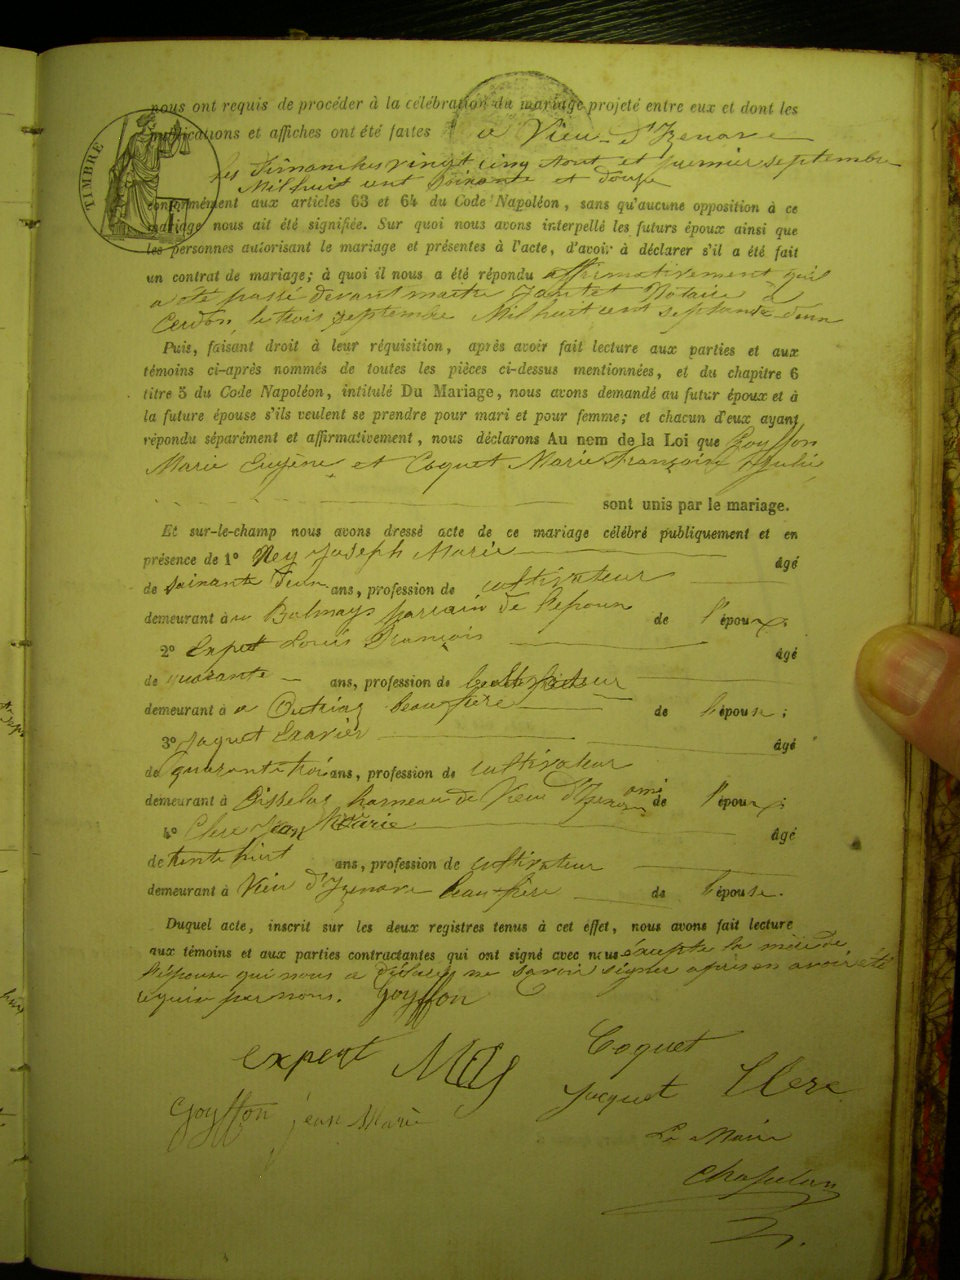 nous ont requis de procéder à la célébration du mariage projeté entre eux et dont les
publications et affiches ont été faites à Vieu-d'Izenave
les Dimanches vingt cinq Aout et premier septembre
Mil huit cent soixante et douze
conformément aux articles 63 et 64 du Code Napoléon, sans qu'aucune opposition à ce
mariage nous ait été signifiée. Sur quoi nous avons interpellé les futurs époux ainsi que
les personnes autorisant le mariage et présentes à l'acte, d'avoir à déclarer s'il a été fait
un contrat de mariage; à quoi il nous a été répondu affirmativement qu'il
a été passé devant maitre Jantet Notaire à
Cerdon, le trois septembre Mil huit cent septante deux
Puis, faisant droit à leur réquisition, après avoir fait lecture aux parties et aux
témoins ci-après nommés de toutes les pièces ci-dessus mentionnées, et du chapitre 6
titre 5 du Code Napoléon, intitulé Du Mariage, nous avons demandé au futur époux et à
la future épouse s'ils veulent se prendre pour mari et pour femme; et chacun d'eux ayant
répondu séparément et affirmativement, nous déclarons Au nom de la Loi que Goyffon
Marie Eugène et Coquet Marie Françoise Julie
sont unis par le mariage.
Et sur-le-champ nous avons dressé acte de ce mariage célébré publiquement et en
présence de 1° Ney Joseph Marie âgé
de soixante d'eux ans, profession de cultivateur
demeurant à Balmay parrain de l'epoux de l'époux;
2° Expert Louis François âgé
de quarante ans, profession de
demeurant à a Outriaz beau frère de l'épouse;
3° Jaquet Exavier âgé
de quarante trois ans, profession de cultivateur
demeurant à hameau de Vieu d'Izenave ami de l'époux;
4° Clerc Jean Marie âgé
de trente huit ans, profession de cultivateur
demeurant à Vieu d'Izenave beau-frère de l'épouse.
Duquel acte, inscrit sur les deux registres tenus à cet effet, nous avons fait lecture
aux témoins et aux parties contractantes qui ont signé avec nous éxcepté la mère de
l'épouse qui nous a déclaré ne savoir signer après en avoir été
requise par nous. Goyffon
expert Ney Coquet
Goyffon jean Marie Jacquet Clerc
Le Maire
Chapelan
TIMBRE